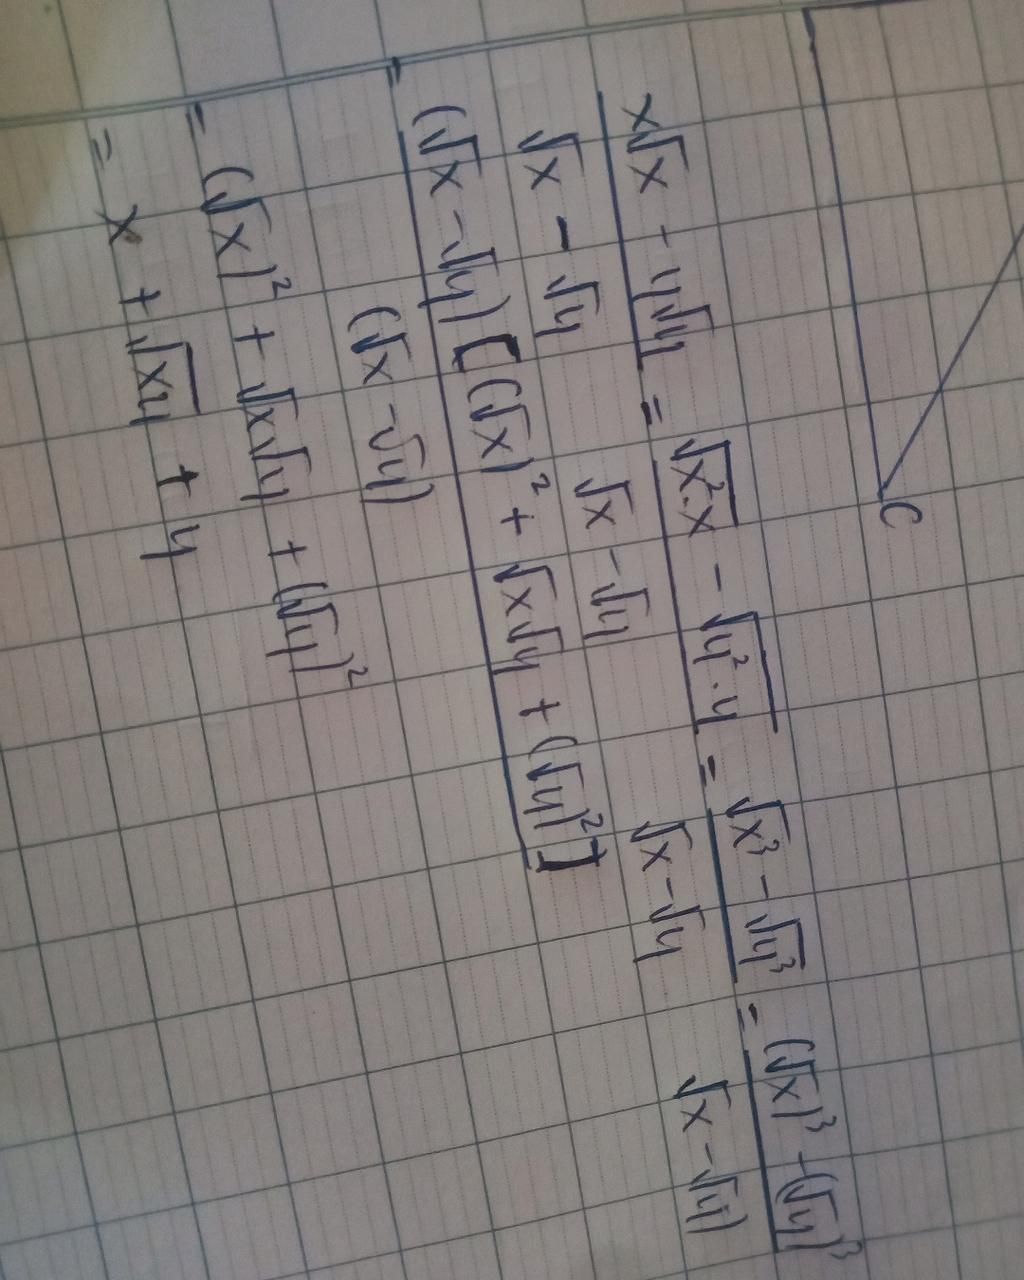 C
x√x - y√y / √x - √y = √x².x - √y².y / √x - √y = √x³ - √y³ / √x - √y = (√x)³ - (√y)³ / √x - √y)
= (√x - √y) [(√x)² + √x√y + (√y)²] / (√x - √y)
= (√x)² + √x√y + (√y)²
= x + √xy + y